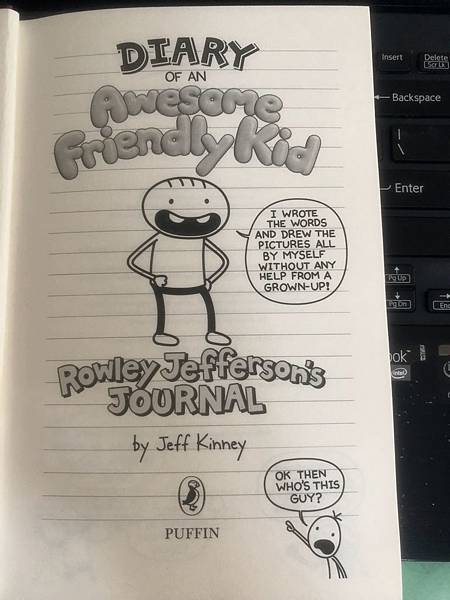 DIARY
OF AN
Awesome
Friendly Kid
I WROTE
THE WORDS
AND DREW THE
PICTURES ALL
BY MYSELF
WITHOUT ANY
HELP FROM A
GROWN-UP!
Rowley Jefferson's
JOURNAL
by Jeff Kinney
OK THEN
WHO'S THIS
GUY?
PUFFIN
Insert
Delete
Scr Lk
Backspace
|
\
Enter
Pg Up
Pg Dn
ok
intel